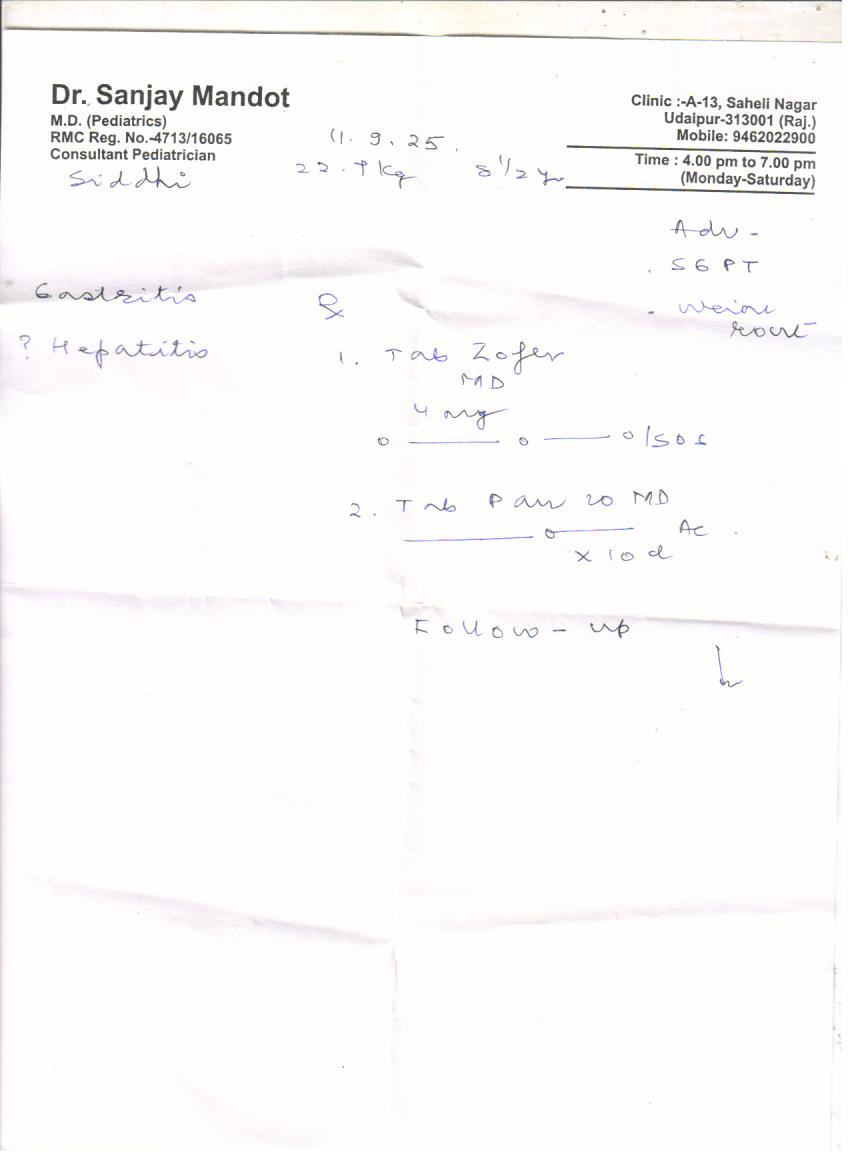 Dr. Sanjay Mandot
M.D. (Pediatrics)
RMC Reg. No.-4713/16065
Consultant Pediatrician
Clinic :-A-13, Saheli Nagar
Udaipur-313001 (Raj.)
Mobile: 9462022900
Time : 4.00 pm to 7.00 pm
(Monday-Saturday)
11. 9. 25.
Siddhi
22. kg 8 1/2 yr
Adv -
. SGPT
Gastritis
? Hepatitis
Rx
1. Tab Zofer
MD
4 mg
o —— o —— o/sos
2. Tab Pan 20 MD
—— o —— AC
x 10 d
Follow - up